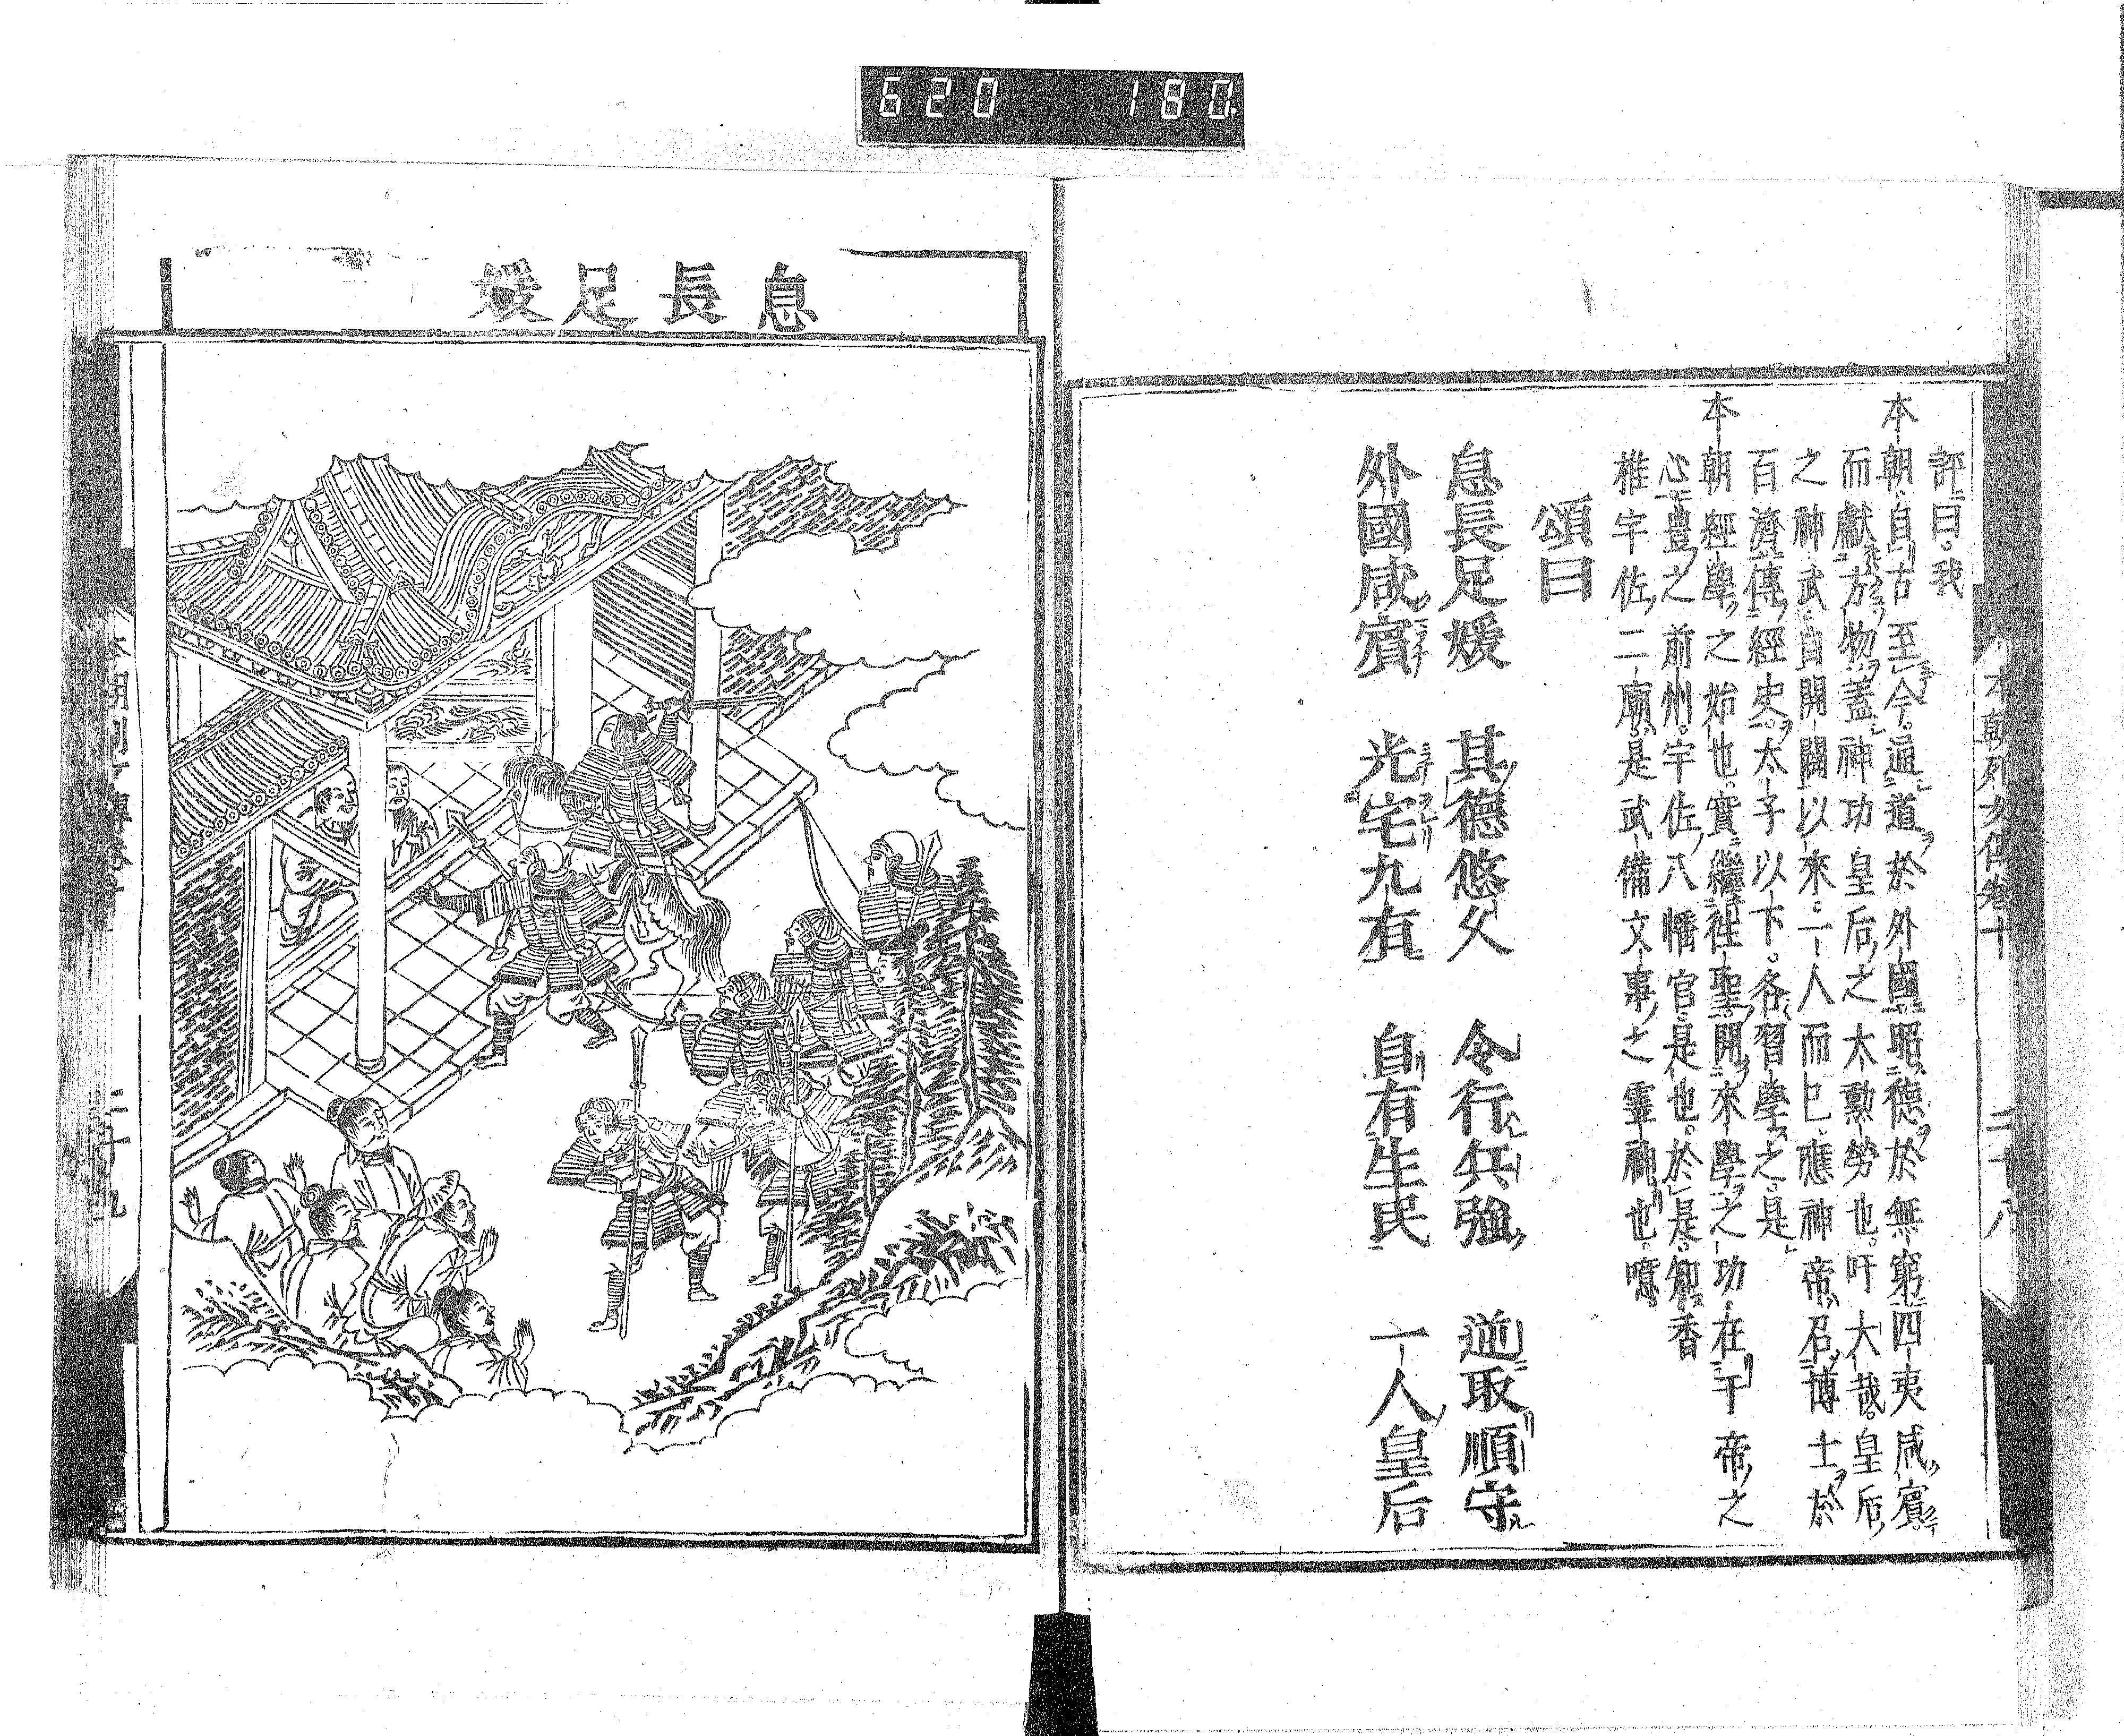 620 180
評曰。我
本朝自古至今。通道於外國。昭德於無窮。四夷咸賓
而獻方物。蓋神功皇后之大勲勞也。吁大哉。皇后
之神武。自開闢以來。一人而已。應神帝。召博士於
百濟傳經史。太子以下。各習學之。是
本朝經學之始也。實繼往聖開來學之功。在于帝之
心。豊之前州。宇佐八幡宮是也。於是知香
椎宇佐二廟。是武備文事之靈神也。噫。
頌曰
息長足媛 其德悠久 令行兵強 逆取順守
外國咸賓 光宅九有 自有生民 一人皇后
本朝列女傳卷十 二十八
息長足媛
本朝列女傳卷十 二十九